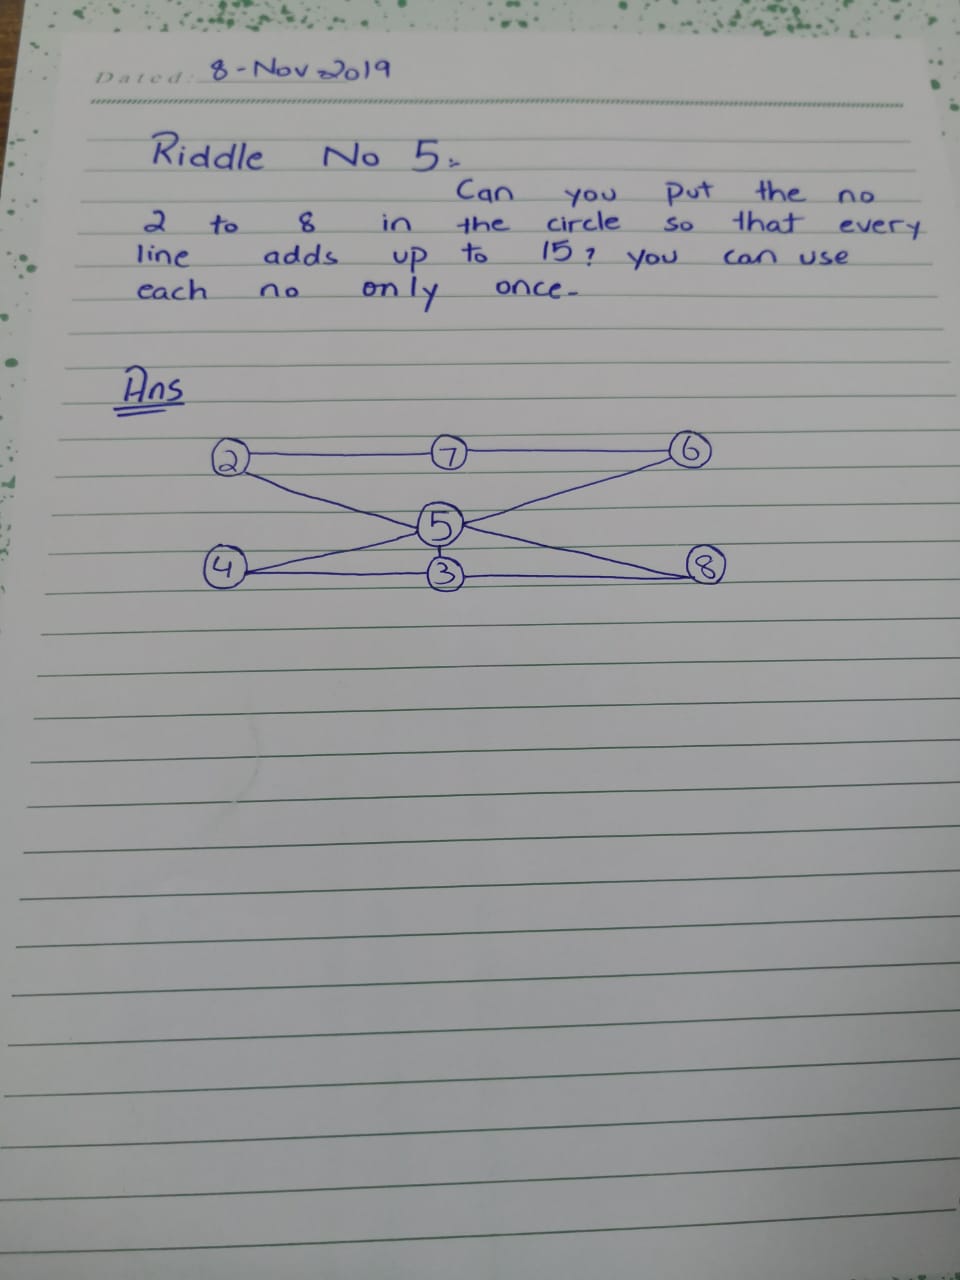 Dated: 8-Nov 2019
Riddle No 5:-
Can you put the no
2 to 8 in the circle so that every
line adds up to 15? you can use
each no only once-
Ans
2 7 6
5
4 3 8